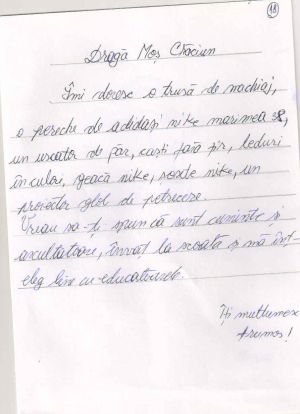 18
Dragă Moș Crăciun
Îmi doresc o trusă de machiaj,
o pereche de adidași nike marimea 38,
un uscător de păr, căști fara fir, leduri
în culori, geacă nike, sosete nike, un
proiector glob de petrecere.
Vreau sa-ți spun că sunt cuminte și
ascultatoare, învat la scoală și mă înț-
eleg bine cu educatoarele.
Îți multumesc
frumos!